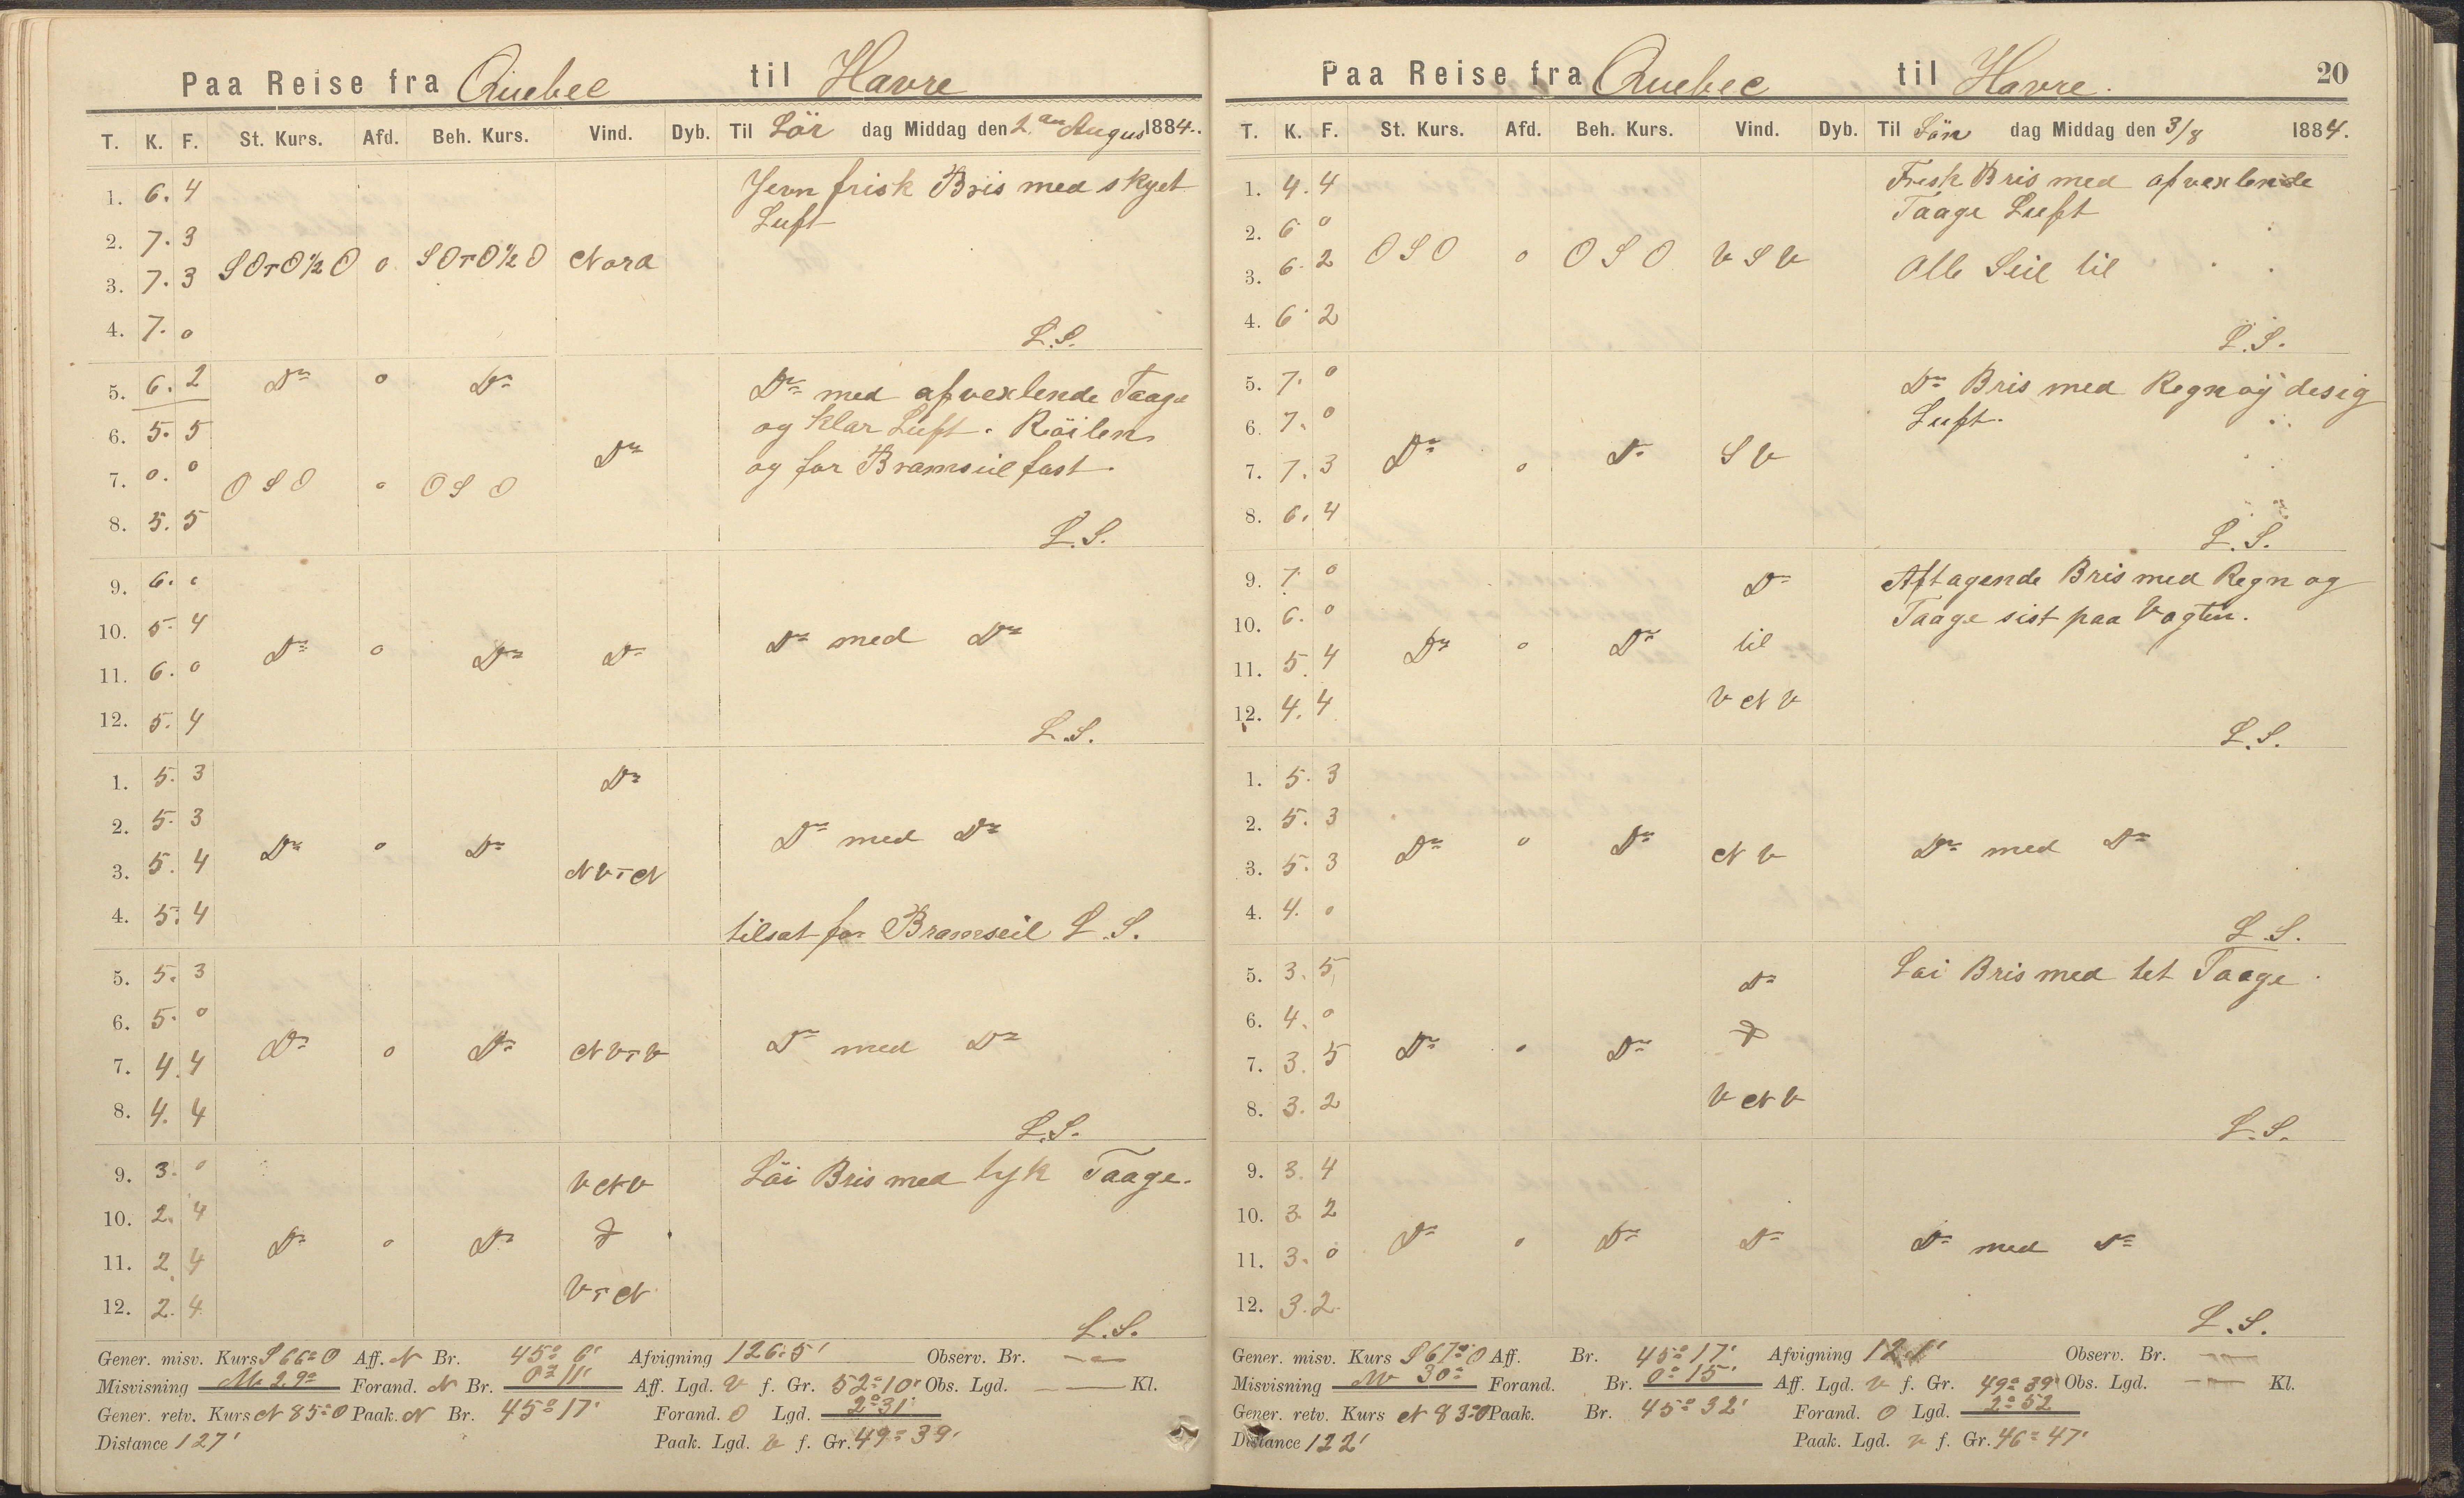 Paa Reise fra Quebec til Havre
T. K. F. St. Kurs. Afd. Beh. Kurs. Vind. Dyb. Til Lör dag Middag den 2 den August 1884.
1. 6. 4 Jevn frisk Bris med skyet
Luft
2. 7. 3
SOTO½O 0 SOTO½O Nord
3. 7. 3
4. 7. 0
L.S.
5. 6. 2 Do 0 Do Do med afvexlende Taage
6. 5. 5 og klar Luft. Röilen
Do
7. 0. 0 OSO 0 OSO og for Bramseil fast.
8. 5. 5
L.S.
9. 6. 0
10. 5. 4
Do 0 Do Do Do med Do
11. 6. 0
12. 5. 4
L.S.
1. 5. 3 Do
2. 5. 3
Do 0 Do Do med Do
3. 5. 4 NVTN
4. 5. 4
tilsat for Bramseil L.S.
5. 5. 3
6. 5. 0
Do 0 Do NVTV Do med Do
7. 4. 4
8. 4. 4
L.S.
9. 3. 0 VNV Löi Bris med tyk Taage.
10. 2. 4
Do 0 Do
11. 2. 4
VTN
12. 2. 4
L.S.
Gener. misv. Kurs S 66° O Aff. N Br. 45° 6' Afvigning 126.5' Observ. Br. —
Misvisning 29° Forand. N Br. 0° 11' Aff. Lgd. V f. Gr. 52° 10' Obs. Lgd. — Kl.
Gener. retv. Kurs N 85° O Paak. N Br. 45° 17' Forand. O Lgd. 2° 31'
Distance 127' Paak. Lgd. V f. Gr. 49° 39'
Paa Reise fra Quebec til Havre. 20
T. K. F. St. Kurs. Afd. Beh. Kurs. Vind. Dyb. Til Sön dag Middag den 3/8 1884.
1. 4. 4 Frisk Bris med afvexlende
Taage Luft
2. 6 0
OSO 0 OSO VSV Alle Seil til
3. 6. 2
4. 6. 2
L.S.
5. 7. 0 Do Bris med Regn og desig
6. 7. 0 Luft.
Do 0 Do SV
7. 7. 3
8. 6. 4
L.S.
9. 7. 0 Do Aftagende Bris med Regn og
10. 6. 0 Taage sist paa Vagten.
Do 0 Do til
11. 5. 4
VNV
12. 4. 4
L.S.
1. 5. 3
2. 5. 3
Do 0 Do NV Do med Do
3. 5. 3
4. 4. 0
L.S.
5. 3. 5 Do Löi Bris med tet Taage.
6. 4. 0
Do 0 Do
7. 3. 5
8. 3. 2 VNV
L.S.
9. 3. 4
10. 3. 2
Do 0 Do Do Do med Do
11. 3. 0
12. 3. 2
L.S.
Gener. misv. Kurs S 67° O Aff. Br. 45° 17' Afvigning Observ. Br. —
Misvisning 30° Forand. Br. 0° 15' Aff. Lgd. V f. Gr. 49° 39' Obs. Lgd. — Kl.
Gener. retv. Kurs N 83° O Paak. Br. 45° 32' Forand. O Lgd. 2° 52
Distance 122' Paak. Lgd. V f. Gr. 46° 47'